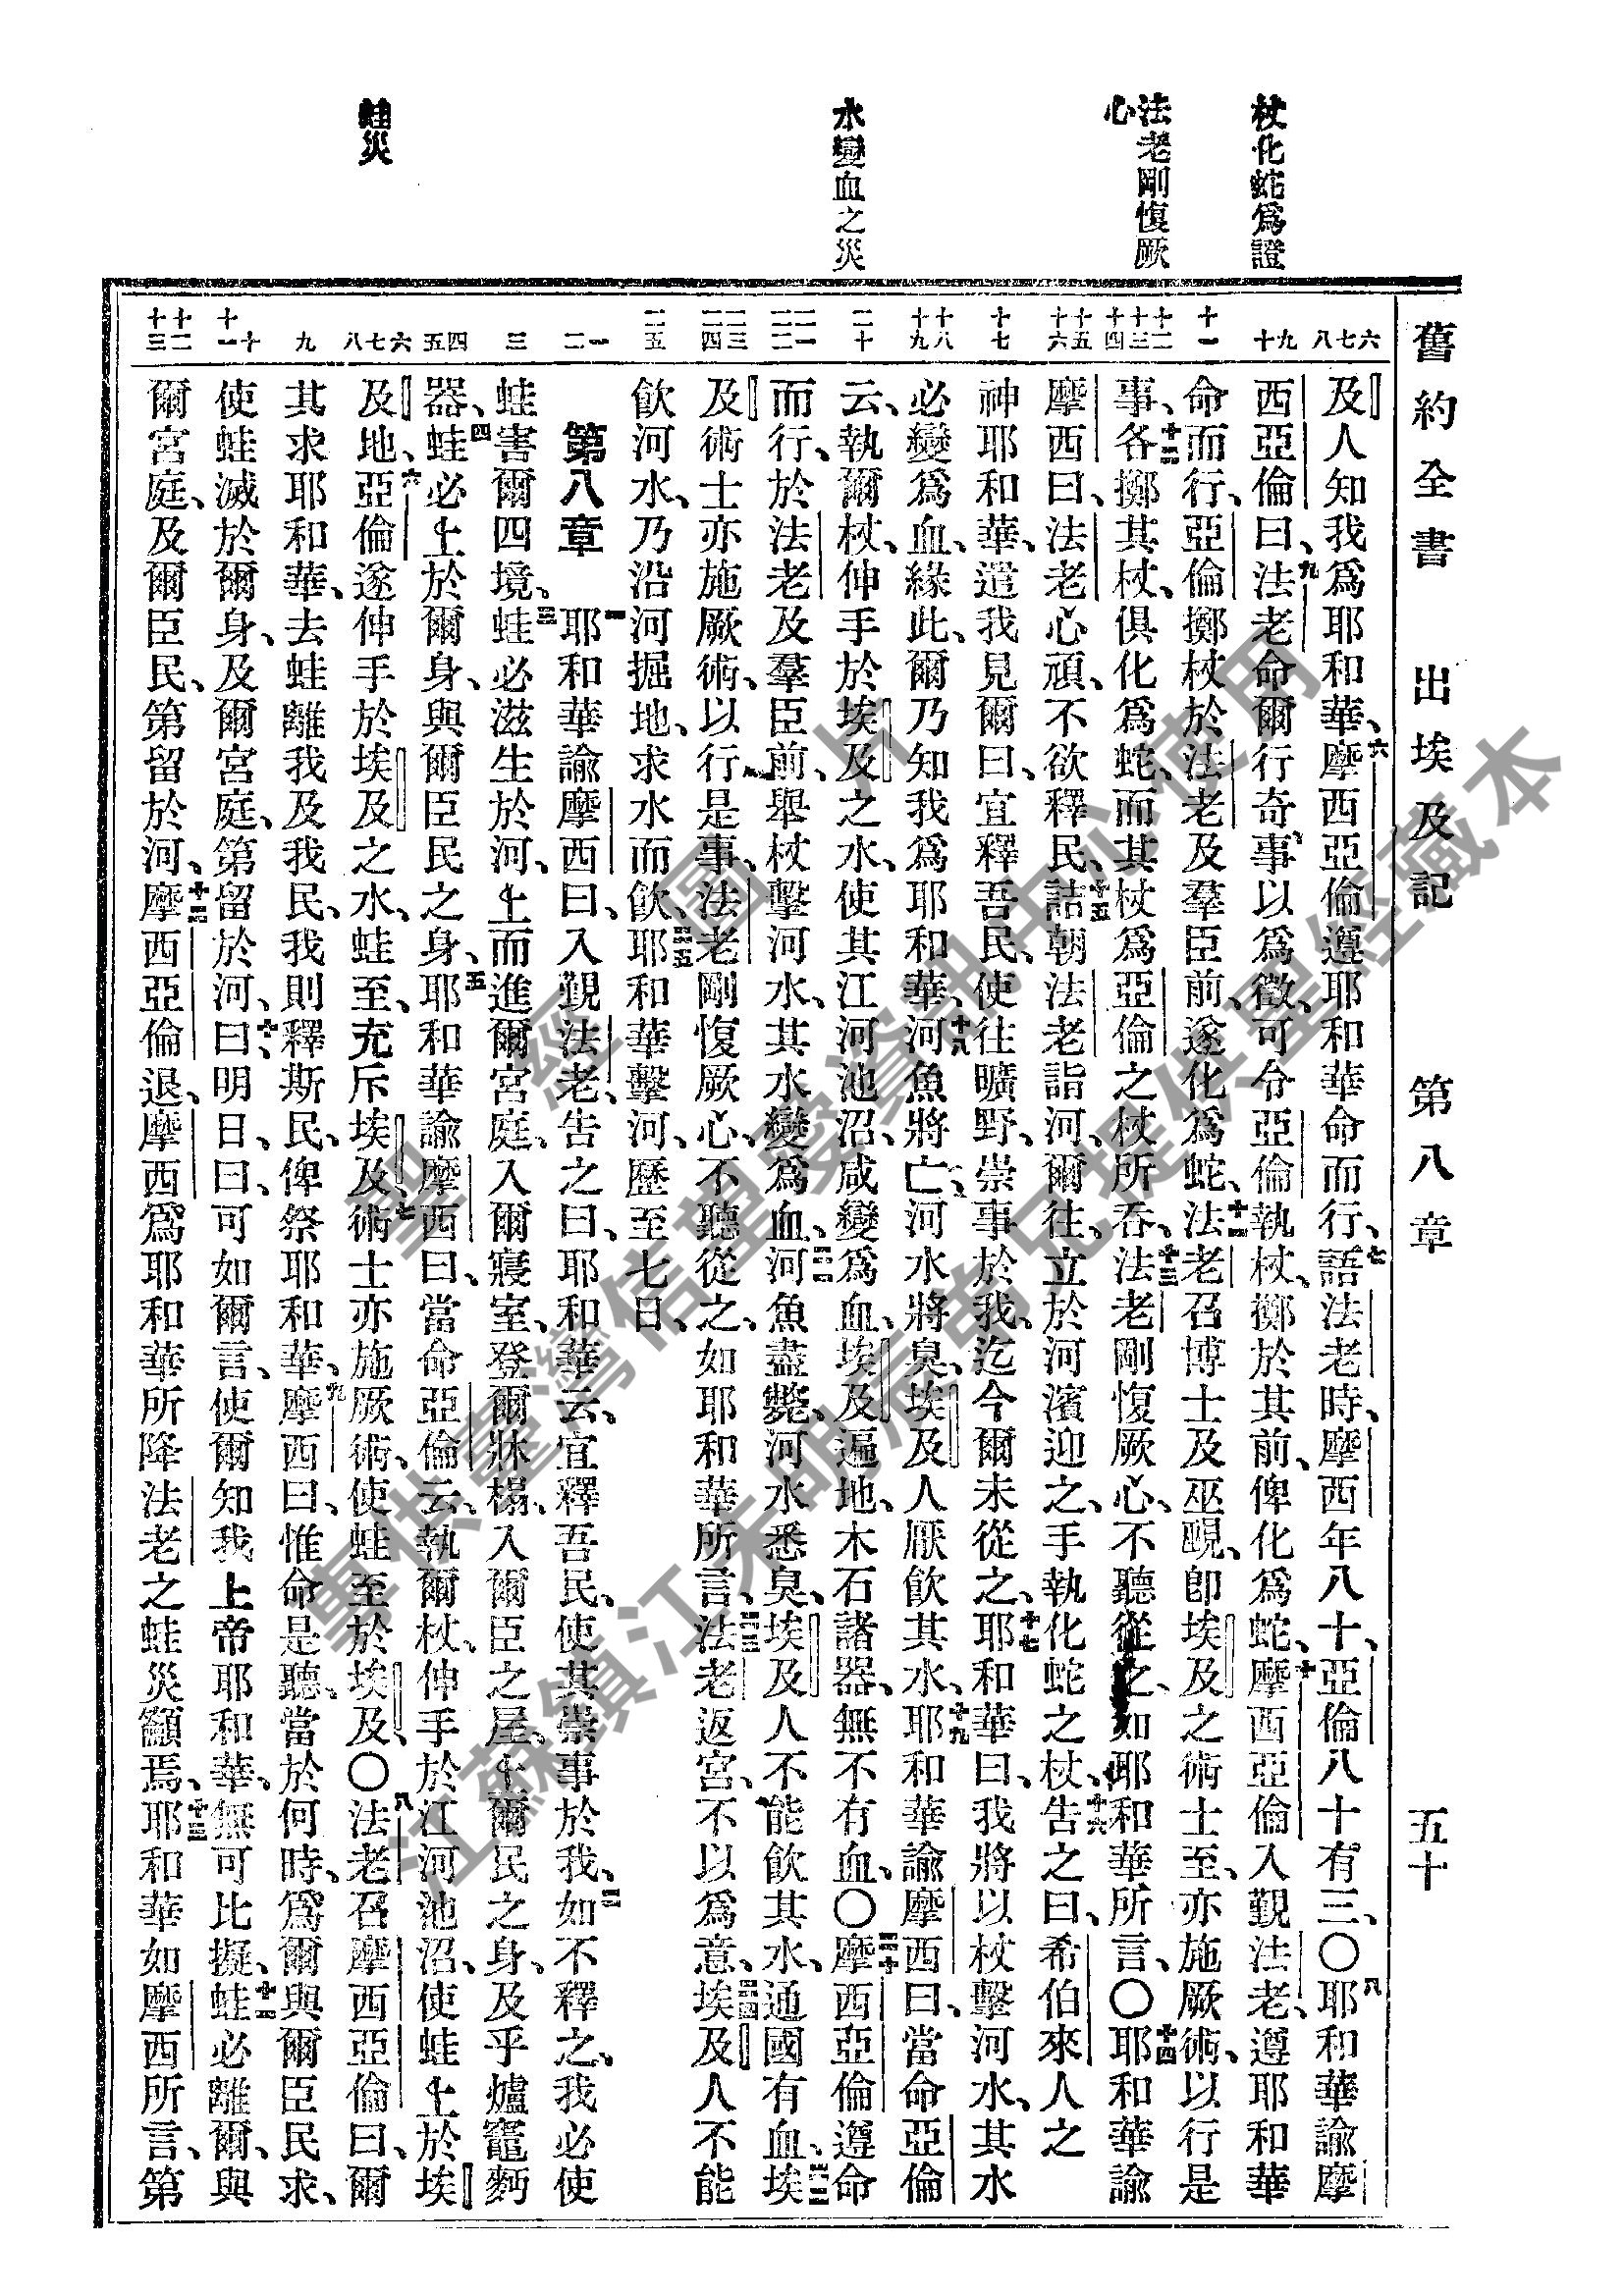 舊約全書 出埃及記 第八章 五十
杖化蛇爲證
法老剛愎厥
心
水變血之災
蛙災
六七八
九十
十一
十二十三十四
十五十六
十七
十八十九
二十
二一二二
二三二四
二五
一二
三
四五
六七八
九
十十一
十二十三
及人知我爲耶和華、六摩西亞倫遵耶和華命而行、七語法老時、摩西年八十、亞倫八十有三、〇八耶和華諭摩
西亞倫曰、九法老命爾行奇事以爲徵、可令亞倫執杖、擲於其前、俾化爲蛇、十摩西亞倫入覲法老、遵耶和華
命而行、亞倫擲杖於法老及羣臣前、遂化爲蛇、十一法老召博士及巫覡、卽埃及之術士至、亦施厥術、以行是
事、十二各擲其杖、俱化爲蛇、而其杖爲亞倫之杖所吞、十三法老剛愎厥心、不聽從之、如耶和華所言、〇十四耶和華諭
摩西曰、法老心頑、不欲釋民、十五詰朝法老詣河、爾往、立於河濱迎之、手執化蛇之杖、十六告之曰、希伯來人之
神耶和華、遣我見爾曰、宜釋吾民、使往曠野、崇事於我、迄今爾未從之、十七耶和華曰、我將以杖擊河水、其水
必變爲血、緣此、爾乃知我爲耶和華、十八河魚將亡、河水將臭、埃及人厭飮其水、十九耶和華諭摩西曰、當命亞倫
云、執爾杖、伸手於埃及之水、使其江河池沼、咸變爲血、埃及遍地、木石諸器、無不有血、〇二十摩西亞倫遵命
而行、於法老及羣臣前、舉杖擊河水、其水變爲血、二一河魚盡斃、河水悉臭、埃及人不能飮其水、通國有血、二二埃
及術士亦施厥術、以行是事、法老剛愎厥心、不聽從之、如耶和華所言、二三法老返宮、不以爲意、二四埃及人不能
飮河水、乃沿河掘地、求水而飮、二五耶和華擊河、歷至七日、
第八章 一耶和華諭摩西曰、入覲法老、告之曰、耶和華云、宜釋吾民、使其崇事於我、二如不釋之、我必使
蛙害爾四境、三蛙必滋生於河、上而進爾宮庭、入爾寢室、登爾牀榻、入爾臣之屋、上爾民之身、及乎爐竈麪
器、四蛙必上於爾身、與爾臣民之身、五耶和華諭摩西曰、當命亞倫云、執爾杖、伸手於江河池沼、使蛙上於埃
及地、六亞倫遂伸手於埃及之水、蛙至、充斥埃及、七術士亦施厥術、使蛙至於埃及、〇八法老召摩西亞倫曰、爾
其求耶和華、去蛙離我及我民、我則釋斯民、俾祭耶和華、九摩西曰、惟命是聽、當於何時、爲爾與爾臣民求、
使蛙滅於爾身、及爾宮庭、第留於河、十曰、明日、曰、可如爾言、使爾知我上帝耶和華、無可比擬、十一蛙必離爾、與
爾宮庭、及爾臣民、第留於河、十二摩西亞倫退、摩西爲耶和華所降法老之蛙災籲焉、十三耶和華如摩西所言、第
聖經圖片
專供臺灣信望愛資訊中心使用
江蘇鎮江朱明辰弟兄提供聖經藏本